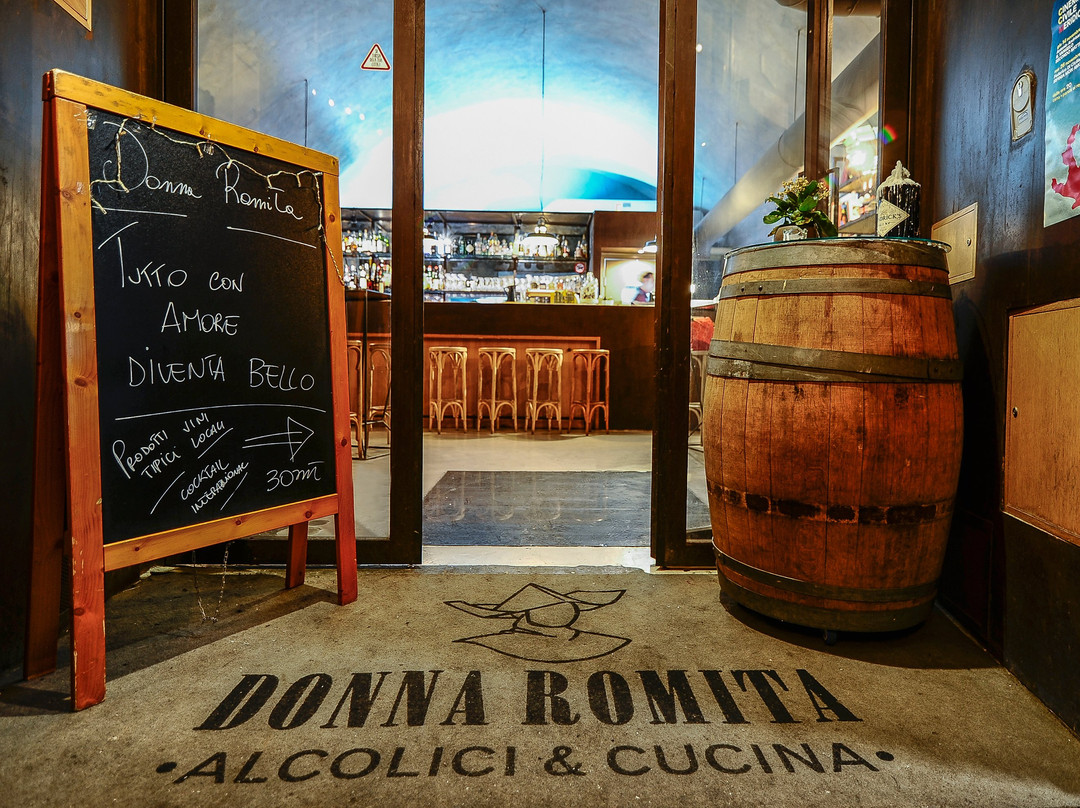 Donna Romita
TUTTO CON
AMORE
DIVENTA BELLO
PRODOTTI VINI
TIPICI LOCALI
COCKTAIL
INTERNAZIONALI
30mt
DONNA ROMITA
•ALCOLICI & CUCINA•
CINEMA
CIVILE